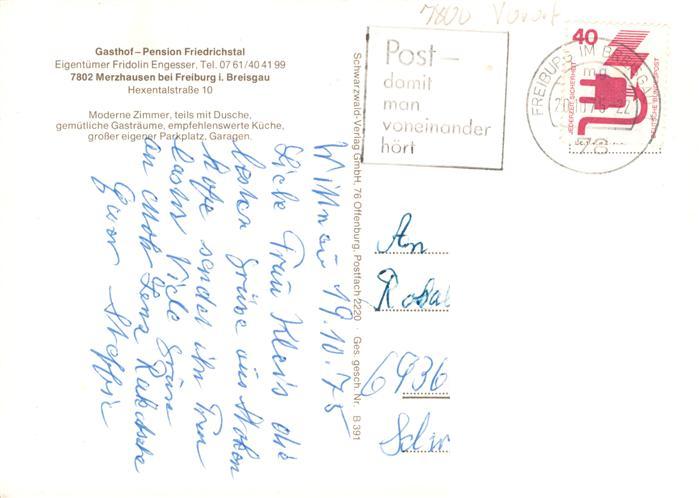 7800 Vorort
Gasthof – Pension Friedrichstal
Eigentümer Fridolin Engesser, Tel. 07 61/40 41 99
7802 Merzhausen bei Freiburg i. Breisgau
Hexentalstraße 10
Moderne Zimmer, teils mit Dusche,
gemütliche Gasträume, empfehlenswerte Küche,
großer eigener Parkplatz, Garagen.
Post –
damit
man
voneinander
hört
40
JEDERZEIT SICHERHEIT
DEUTSCHE BUNDESPOST
FREIBURG IM BREISGAU
mg
78
Schwarzwald-Verlag GmbH, 76 Offenburg, Postfach 2220 · Ges. gesch. Nr. B 391
Wittnau 19.10.75
Liebe Frau Kleis die
besten Grüße aus
sendet ihn
Viele Grüße
an
An
Rosal
6936